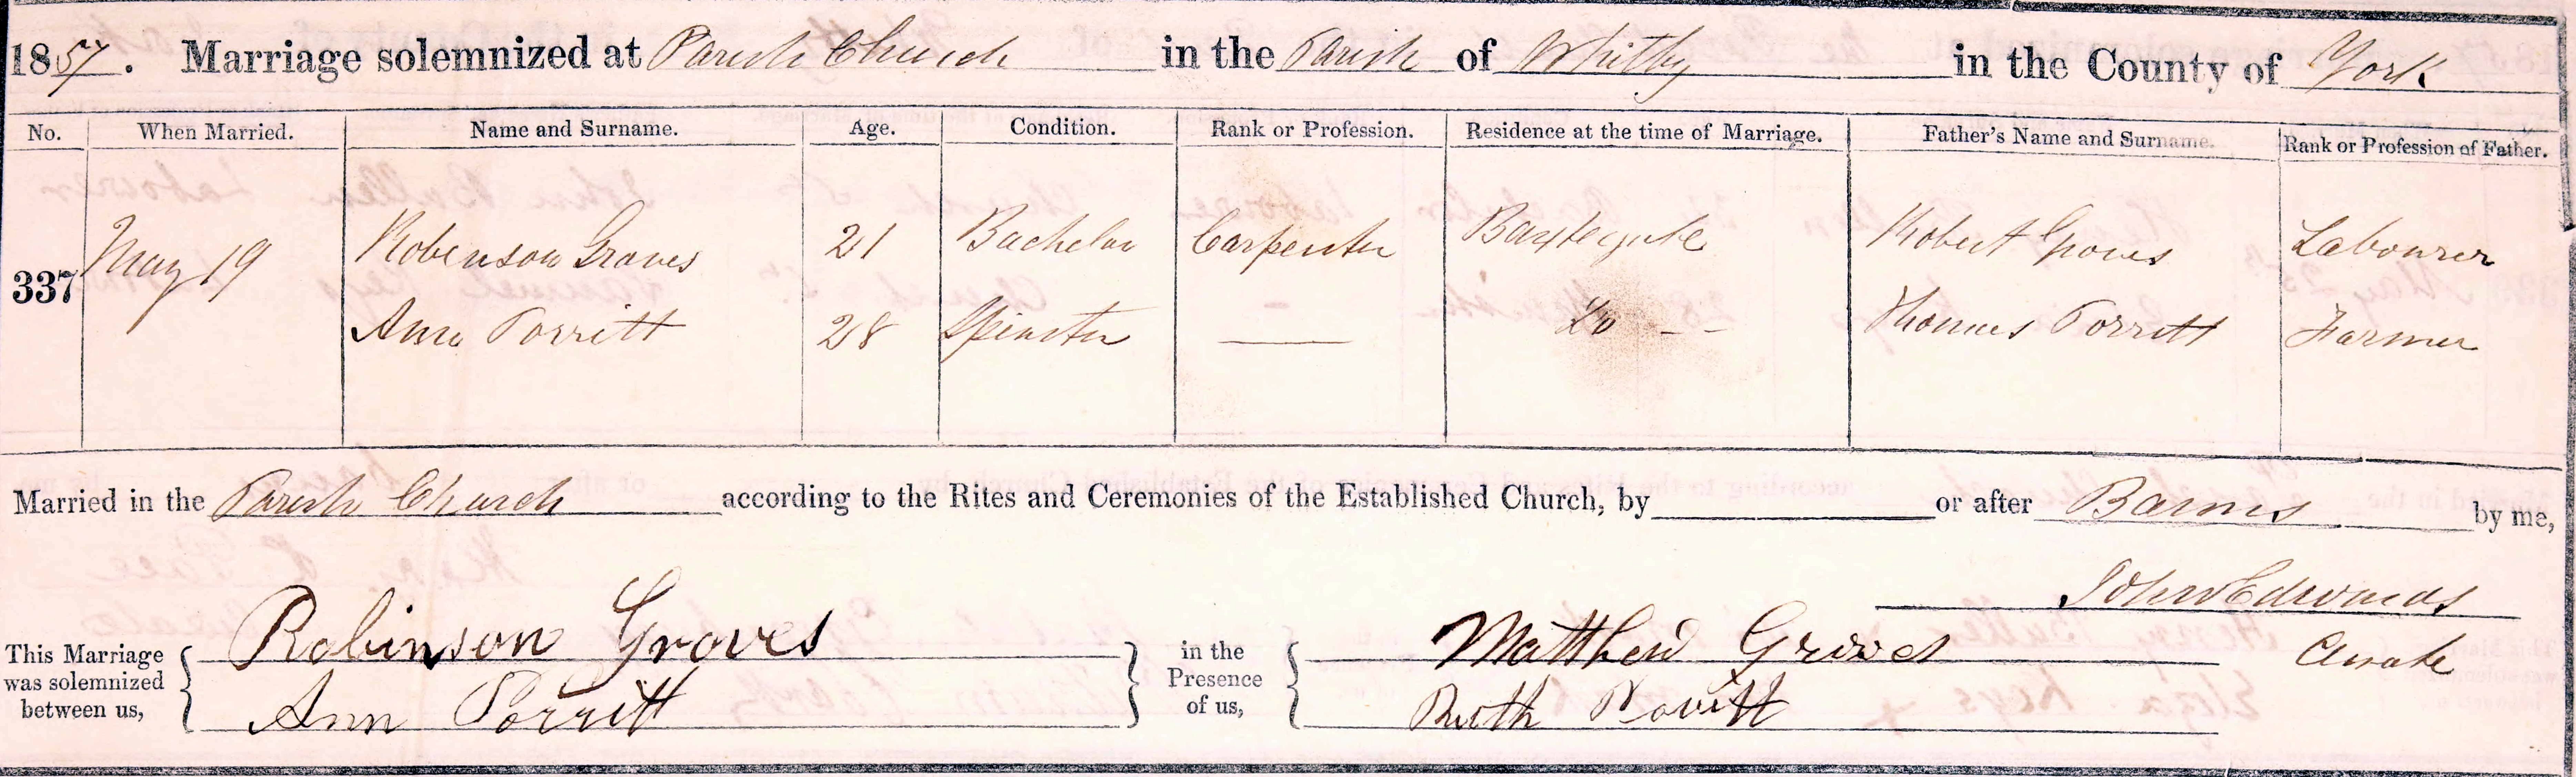 1857. Marriage solemnized at Parish Church in the Parish of Whitby in the County of York
No. When Married. Name and Surname. Age. Condition. Rank or Profession. Residence at the time of Marriage. Father's Name and Surname. Rank or Profession of Father.
337 May 19 Robinson Groves 21 Bachelor Carpenter Baxtergate Robert Groves Labourer
Ann Porritt 28 Spinster — Do - - Thomas Porritt Farmer
Married in the Parish Church according to the Rites and Ceremonies of the Established Church, by or after Banns by me,
John Edwards
Curate
This Marriage was solemnized between us, { Robinson Groves } in the Presence of us, { Matthew Groves
Ann Porritt Ruth Porritt